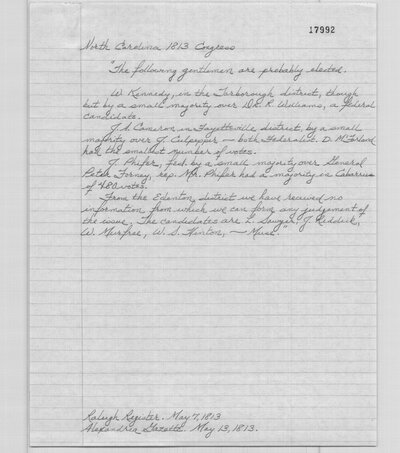 17992
North Carolina 1813 Congress
"The following gentlemen are probably elected.
W Kennedy, in the Tarborough district, though
but by a small majority over Dr. R Williams, a federal
candidate.
J. A. Cameron in Fayetteville district, by a small
majority over J. Culpepper — both Federalists. D. McFarland
had the smallest number of votes.
J. Phifer, fed. by a small majority over General
Peter Forney, rep. Mr. Phifer had a majority in Cabarrus
of 480 votes.
From the Edenton district we have received no
information from which we can form any judgement of
the issue. The candidates are L. Sawyer, J. Riddick,
W. Murfree, W. S. Hinton, —
Raleigh Register. May 7, 1813
Alexandria Gazette. May 13, 1813.